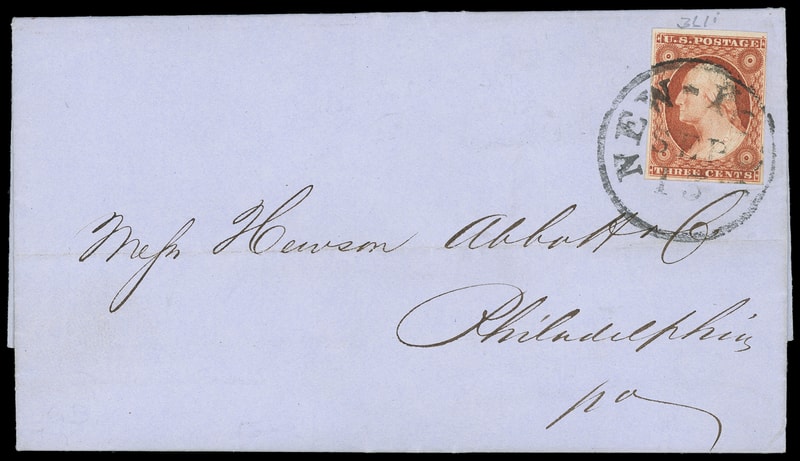 3L1i
U.S. POSTAGE
NEW-Y
SEP
13
THREE CENTS
Messrs Hewson Abbott & Co
Philadelphia
pa